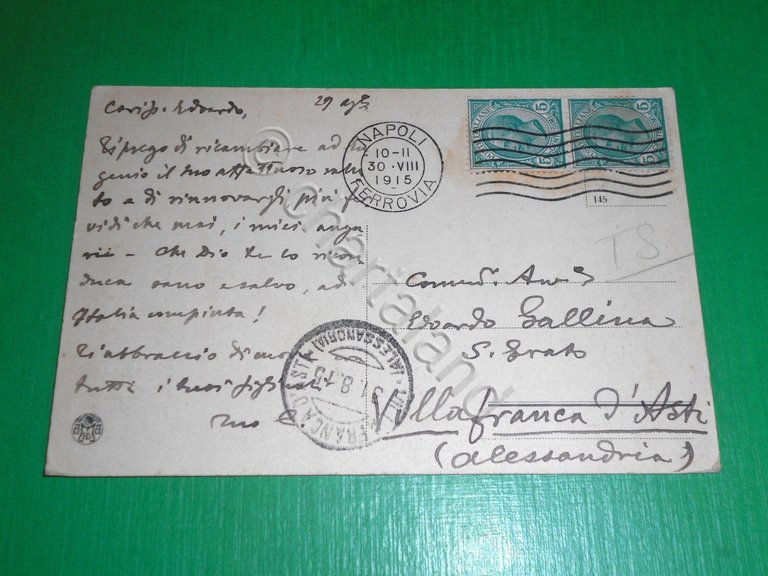 Cariss. Edoardo,
29 agto
Ti prego di ricambiare ad Eu
genio il suo affettuoso salu
to e di rinnovargli più
vidi che mai, i miei augu
rii - Che Dio te lo ricon
duca sano e salvo, ad
Italia compiuta!
Ti abbraccio di cuore
tutti i tuoi figli
tuo
NAPOLI
10-11
30·VIII
1915
FERROVIA
5
5
145
TS
Comend. Avv.
Edoardo Gallina
S. Grato
Villafranca d'Asti
(Alessandria)
FRANCA D'ASTI
(ALESSANDRIA)
8.15
© chartaland